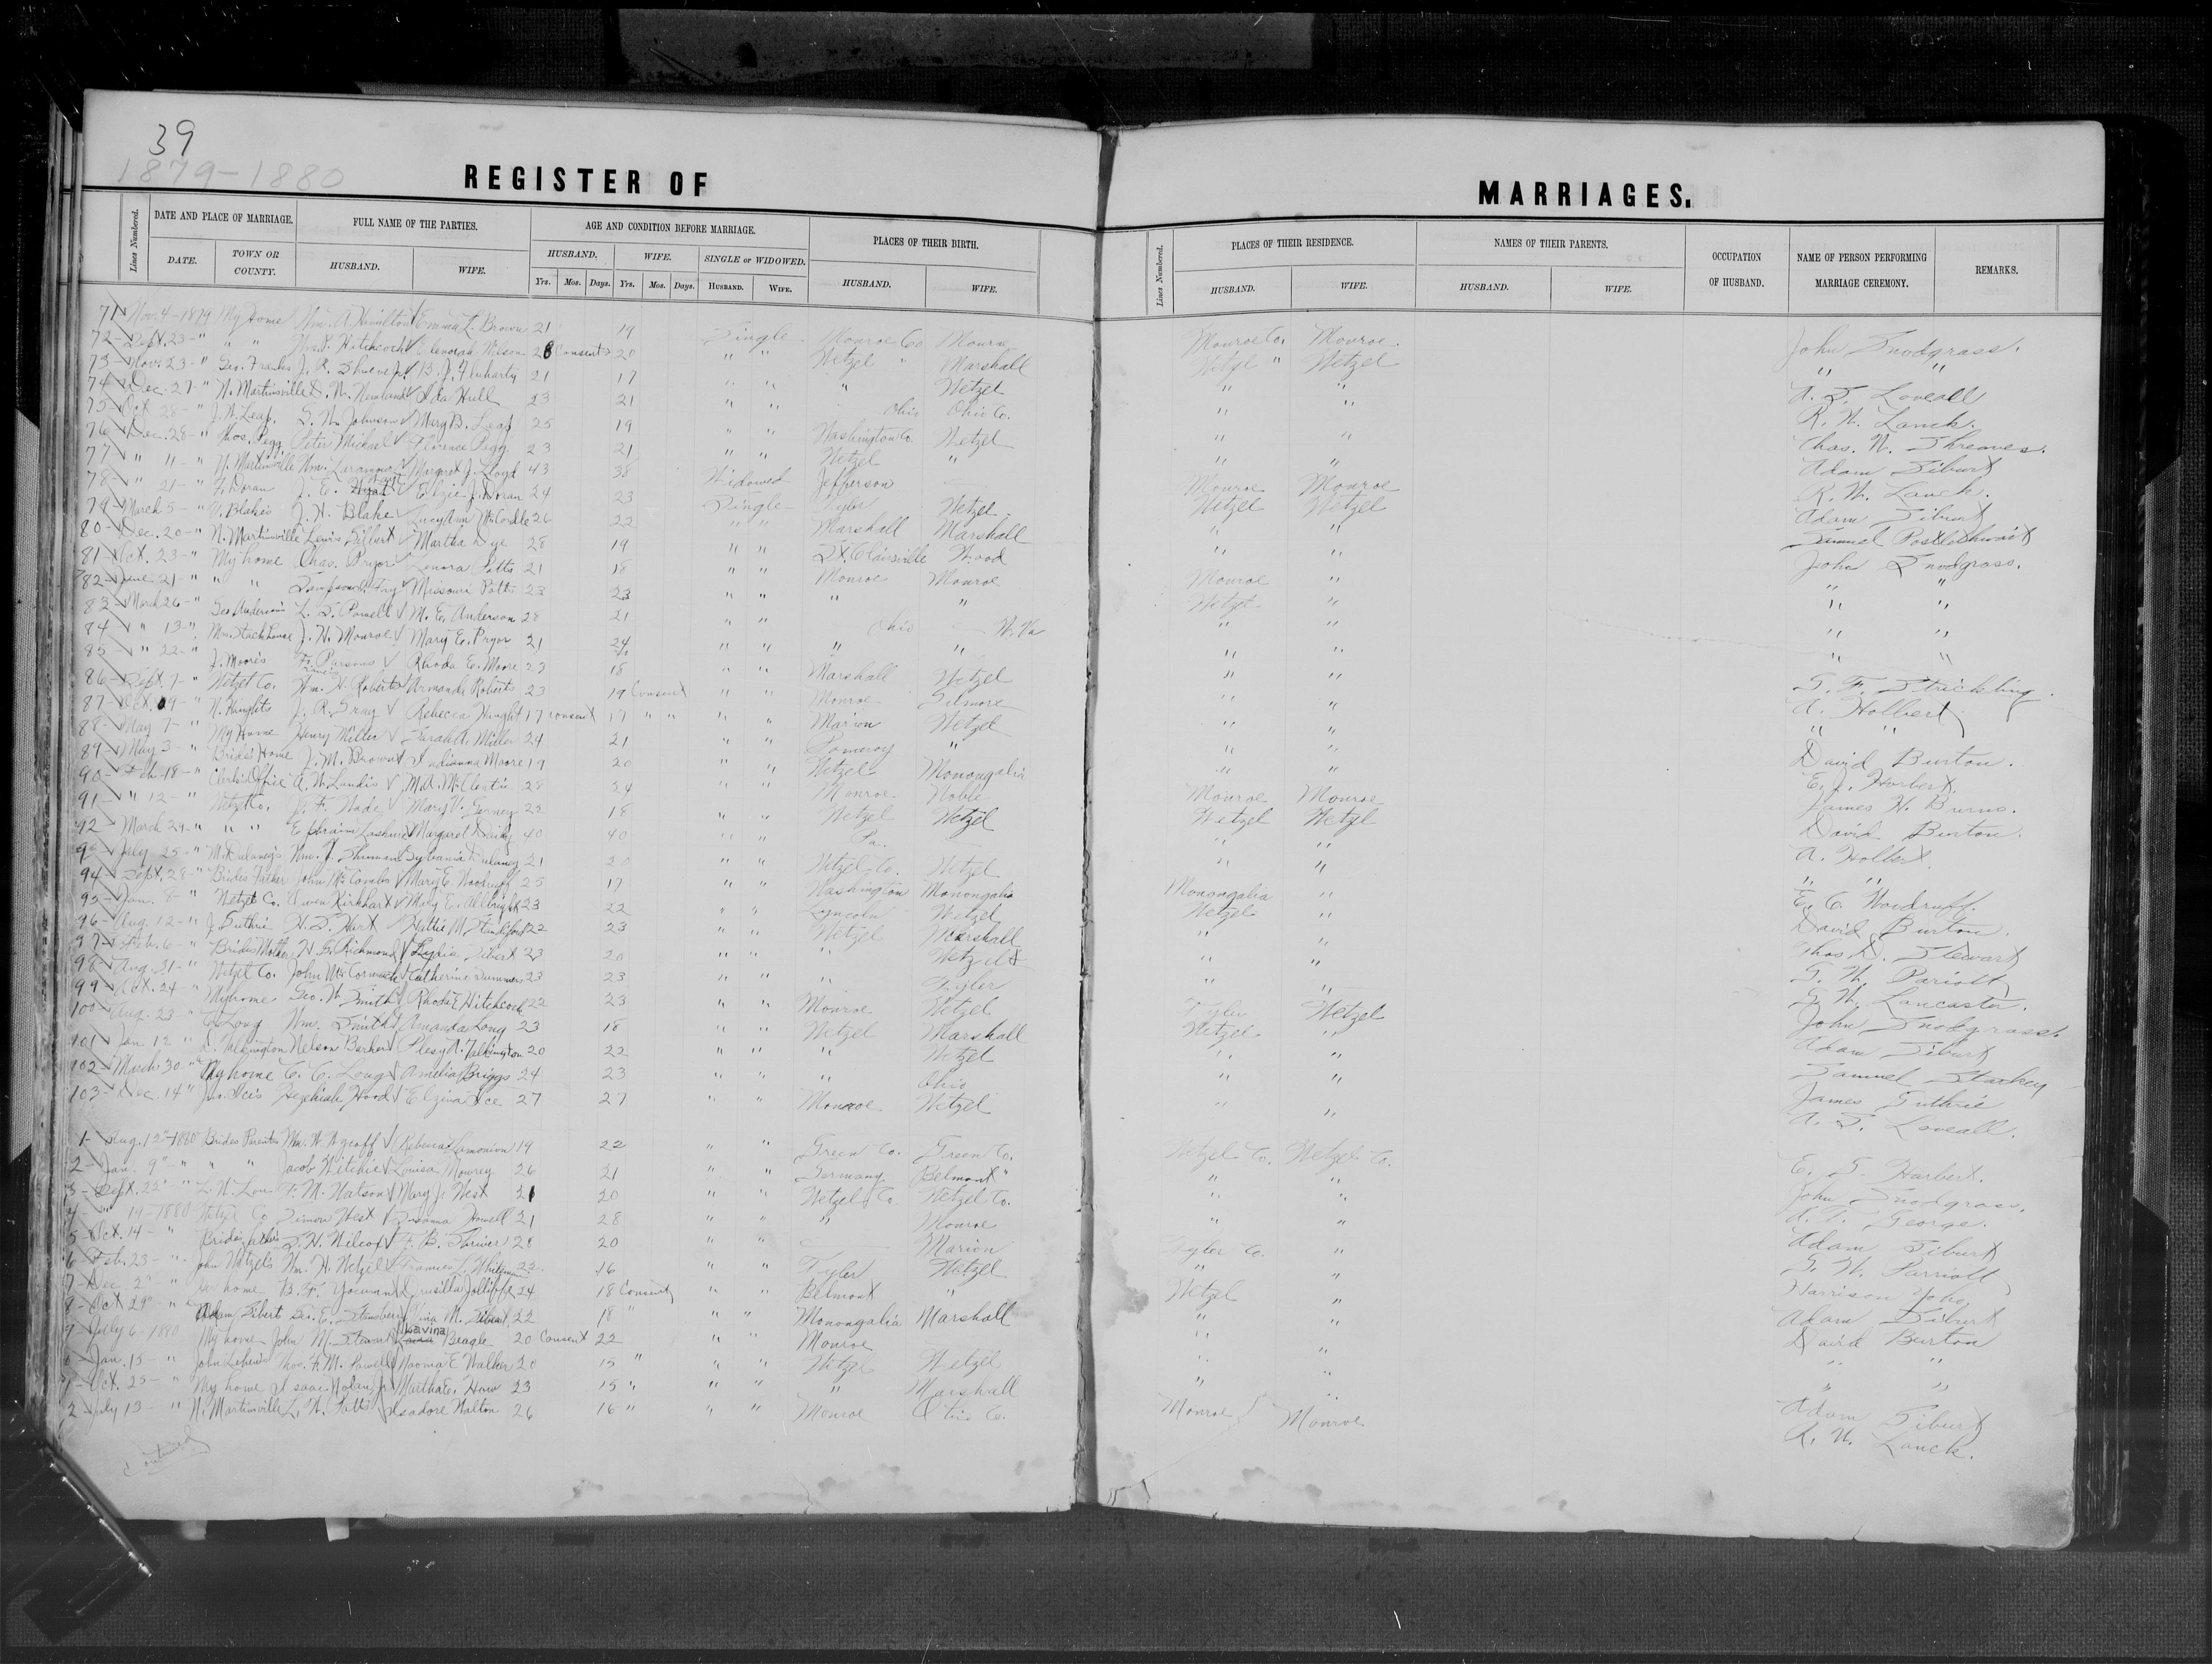 39
1879-1880
REGISTER OF MARRIAGES.
Lines Numbered. DATE AND PLACE OF MARRIAGE. FULL NAME OF THE PARTIES. AGE AND CONDITION BEFORE MARRIAGE. PLACES OF THEIR BIRTH. Lines Numbered. PLACES OF THEIR RESIDENCE. NAMES OF THEIR PARENTS. OCCUPATION OF HUSBAND. NAME OF PERSON PERFORMING MARRIAGE CEREMONY. REMARKS.
DATE. TOWN OR COUNTY. HUSBAND. WIFE. HUSBAND. WIFE. SINGLE or WIDOWED. HUSBAND. WIFE. HUSBAND. WIFE. HUSBAND. WIFE.
Yrs. Mos. Days. Yrs. Mos. Days. HUSBAND. WIFE.
71 Nov. 4-1879 My Home Wm. A. Hamilton Emma L. Brown 21 19 Single Monroe Co Monroe Monroe Co. Monroe John Snodgrass.
72 Sept. 23 - " " " Wm. P. Hitchcock Elenorah Wilson Consent 20 " " Wetzel " Marshall Wetzel " Wetzel " "
73 Nov. 23 - " Geo. Franks J. R. Shreve Jr. B. J. Fluharty 21 17 " " " Wetzel " " A. S. Loveall
74 Dec. 27 " N. Martinsville D. W. Newland Ida Hull 23 21 " " Ohio Ohio Co. " " R. W. Lanck.
75 Oct 28 - " J. W. Leap. S. W. Johnson Mary B. Leap 25 19 " " Washington Co. Wetzel " " Chas. W. Shreves.
76 Dec. 28 - " Thos. Pegg Peter Michael Florence Pegg 23 21 " " Wetzel " " " Adam Sibert
77 " 11 - " N. Martinsville Wm. Margaret J. Lloyd 43 38 Widowed Jefferson Monroe Monroe R. W. Lanck.
78 " 21 - " F. Doran J. E. Elzie J. Doran 24 23 Single Tyler Wetzel Wetzel Wetzel Adam Sibert
79 March 5 - " V. Blake's J. H. Blake Lucy Ann McCardle 26 22 " " Marshall Marshall " " Samuel Postlethwait
80 Dec. 20 - " N. Martinsville Lewis Martha Dye 28 19 " " St. Clairsville Wood " " John Snodgrass.
81 Oct. 23 - " My home Chas. Pryor Lenora Potts 21 18 " " Monroe Monroe Monroe " " "
82 June 21 - " " " Simpson Fry Missouri Potts 23 23 " " " " Wetzel " " "
83 March 26 - " Geo Anderson's L. S. Powell M. E. Anderson 28 21 " " Ohio W. Va " " " "
84 " 13 - " Wm. Stackhouse J. H. Monroe Mary E. Pryor 21 24 " " " " " " " "
85 " 22 - " J. Moore's Parsons Rhoda E. Moore 23 18 " " Marshall Wetzel " " S. F. Strickling
86 Sept. 7 - " Wetzel Co. Wm. H. Roberts Armanda Roberts 23 19 Consent " " Monroe Gilmore " " A. Holbert
87 Oct. 9 - " N. Haught's J. R. Gray Rebecca Haught 17 consent 17 " " " " Marion Wetzel " " " "
88 May 7 - " My Home Henry Miller Sarah A. Miller 24 21 " " Pomeroy " " " David Burton.
89 May 3 - " Bride's Home J. M. Brown Indianna Moore 19 20 " " Wetzel Monongalia " " E. J. Harbert.
90 Feb. 18 - " Clerk's Office A. W. Landis M. A. McClentic 28 24 " " Monroe Noble Monroe Monroe James H. Burns.
91 " 12 - " Wetzel Co. J. F. Wade Mary V. 22 18 " " Wetzel Wetzel Wetzel Wetzel David Burton.
92 March 29 - " " " Ephraim Lashure Margaret Daily 40 40 " " Pa. " " A. Holbert
93 July 25 - " M. Dulaney's Wm. J. Shuman Sylvania Dulaney 21 20 " " Wetzel Co. Wetzel " " " "
94 Sept. 28 - " Brides Father John McCombs Mary E. Woodruff 25 17 " " Washington Monongalia Monongalia " E. C. Woodruff.
95 Jan. 8 - " Wetzel Co. Owen Kirkhart Mary E. Allbright 23 22 " " Lyncoln Wetzel Wetzel " David Burton.
96 Aug. 12 - " J. Guthrie H. S. Hart Hattie M. Standiford 22 23 " " Wetzel Marshall " " Thos. D. Stewart
97 Feb. 6 - " Brides Mother H. G. Richmond Lydia Sibert 23 20 " " " Wetzel " " G. W. Pariott
98 Aug. 31 - " Wetzel Co. John McCormick Catherine Summers 23 23 " " " Tyler " " G. W. Lancaster.
99 Oct. 24 - " My home Geo. W. Smith Rhoda E. Hitchcock 22 23 " " Monroe Wetzel Tyler Wetzel John Snodgrass.
100 Aug. 23 " E. Long Wm. Smith Amanda Long 23 18 " " Wetzel Marshall Wetzel " Adam Sibert
101 Jan 12 " Talkington Nelson Barker Plesy A. Talkington 20 22 " " " Wetzel " " Samuel Starkey
102 March 30 - " My home E. C. Long Amelia Briggs 24 23 " " " Ohio " " James Guthrie
103 Dec. 14 " Jno. Ice's Hezekiah Hood Elzina Ice 27 27 " " Monroe Wetzel " " A. S. Loveall.
1 - Aug. 12-1880 Brides Parents Wm. W. Wycoff Rebecca Lamonion 19 22 " " Green Co. Green Co. Wetzel Co. Wetzel Co. E. G. Harbert.
2 - Jan. 9 - " " " Jacob Witchie Louisa Mowrey 26 21 " " Germany Belmont " " " John Snodgrass.
3 - Sept. 22 " L. W. Low F. M. Watson Mary J. West 21 20 " " Wetzel Co. Wetzel Co. " " A. F. George.
4 " 14-1880 Wetzel Co Simon West Susanna Howell 21 28 " " " Monroe " " Adam Sibert
5 - Oct. 14 - " Bride's father S. H. Wilcox F. B. Shriver 28 20 " " Marion Tyler Co. " G. W. Parriott
6 Feb. 23 - " John Wetzel's Wm. H. Wetzel Frances L. Whiteman 22 16 " " Tyler Wetzel " " Harrison Yoho
7 Dec 2 " " My home B. F. Yocum Drusilla Jolliffe 24 18 Consent " " Belmont " Wetzel " Adam Sibert
8 - Oct 29 - " Adam Sibert Geo. E. Stansberry M. Sibert 22 18 " " " Monongalia Marshall " " David Burton
9 July 6-1880 My home John M. Stewart Lavina Beagle 20 Consent 22 " " Monroe " " " "
Jan. 15 - " John Lehew's Thos. F. M. Powell Naoma E. Walker 20 15 " " " Wetzel Wetzel " " " "
1 - Oct. 25 - " My home Isaac Nolan Jr. Martha E. How 23 15 " " " " Marshall " " Adam Sibert
2 July 13 - " N. Martinsville L. W. Potts Isadore Walton 26 16 " " " Monroe Ohio C. Monroe Monroe R. W. Lanck.
Continued